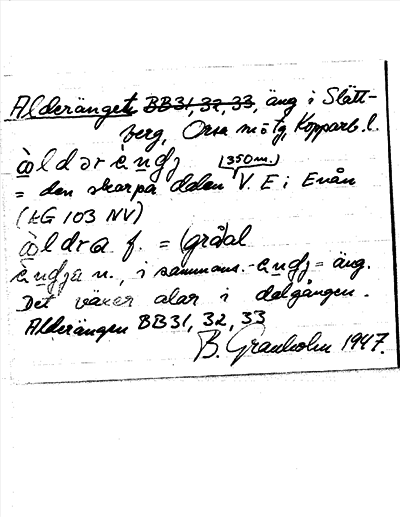 Alderänget, BB31, 32, 33, äng i Slätt-
berg, Orsa mötg, Kopparb. l.
àldərèŋdj (350 m.)
= den skarpa dalen V. E i Enån
(kG 103 NV)
àldra f. = (grå)al
èŋdja n., i sammans. -eŋdj = äng.
Det växer alar i dalgången.
Alderängen BB31, 32, 33
B. Granholm 1947.